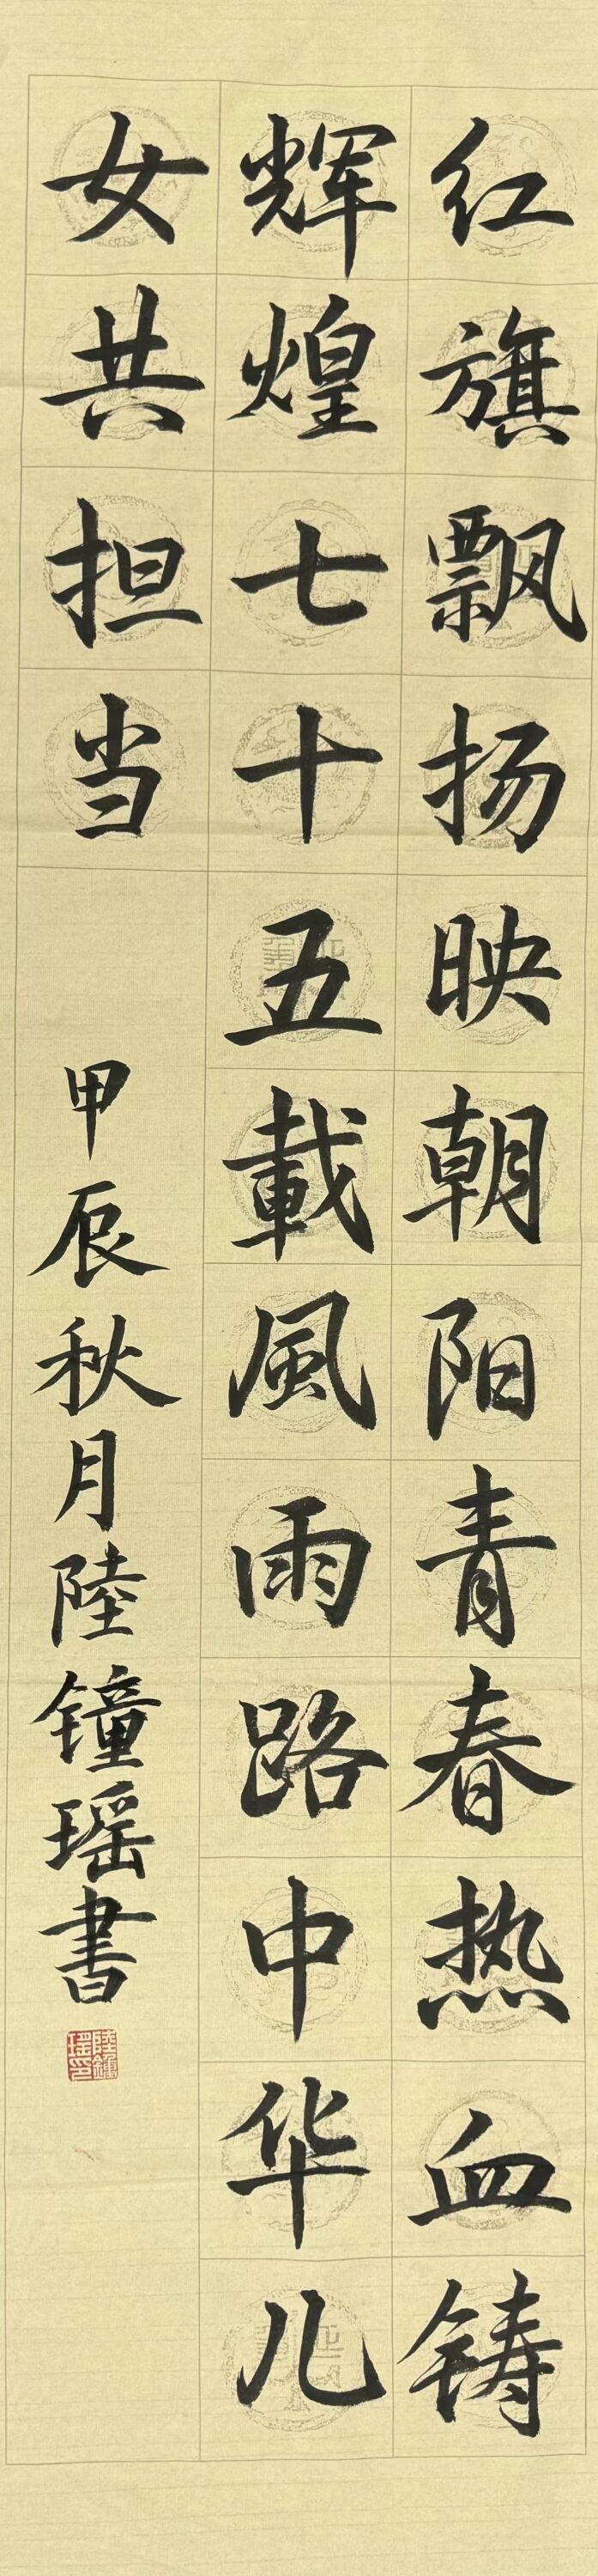 红旗飘扬映朝阳青春热血铸
辉煌七十五載風雨路中华儿
女共担当
甲辰秋月陸鐘瑶書
陸鐘瑶印